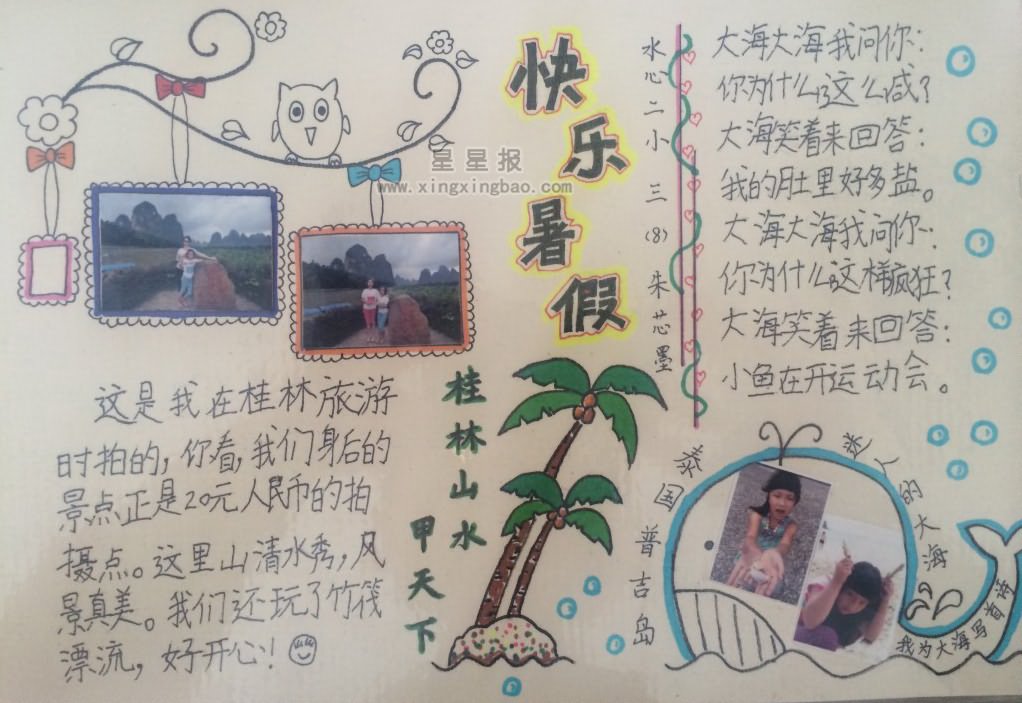 快乐暑假
星星报
www.xingxingbao.com
水心二小 三(8) 朱芯墨
大海大海我问你:
你为什么这么咸?
大海笑着来回答:
我的肚里好多盐。
大海大海我问你:
你为什么这样疯狂?
大海笑着来回答:
小鱼在开运动会。
桂林山水
甲天下
这是我在桂林旅游
时拍的,你看,我们身后的
景点正是20元人民币的拍
摄点。这里山清水秀,风
景真美。我们还玩了竹筏
漂流,好开心!
泰国普吉岛
迷人的大海
我为大海写首诗